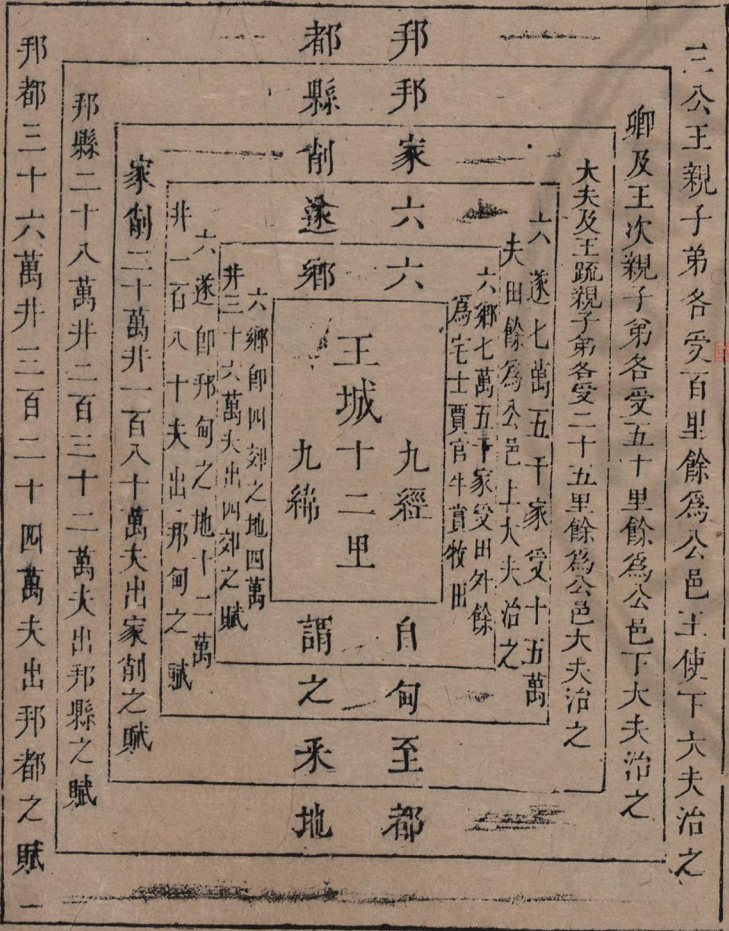 三公王親子弟各受百里餘為公邑王使下大夫治之
卿及王次親子弟各受五十里餘為公邑下大夫治之
大夫及王疏親子弟各受二十五里餘為公邑大夫治之
六遂七萬五千家受十五萬
夫田餘為公邑上大夫治之
六鄉七萬五千家受田外餘
為宅士賈官牛賞牧田
邦都
邦縣
家削
六遂
六鄉
王城十二里
九經
九緯
六鄉即四郊之地四萬
井三十六萬夫出四郊之賦
六遂即邦甸之地十二萬
井一百八十夫出邦甸之賦
家削二十萬井一百八十萬夫出家削之賦
邦縣二十八萬井二百三十二萬夫出邦縣之賦
邦都三十六萬井三百二十四萬夫出邦都之賦一
自甸至都
謂之采地